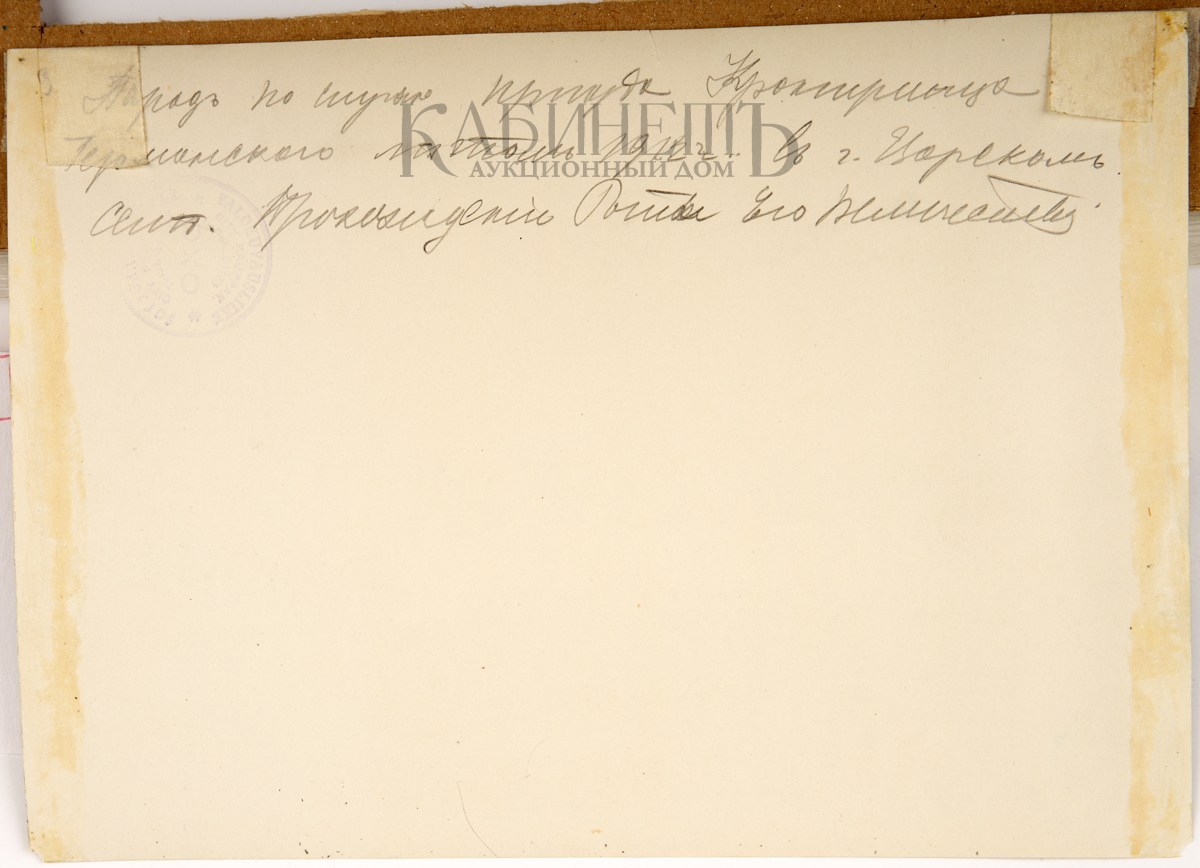 Парадъ по случаю приезда Кронпринца
Германскаго летомъ г. Въ г. Царскомъ
селѣ. Прохожденіе Роты Его Величества
КАБИНЕТЪ
АУКЦИОННЫЙ ДОМ